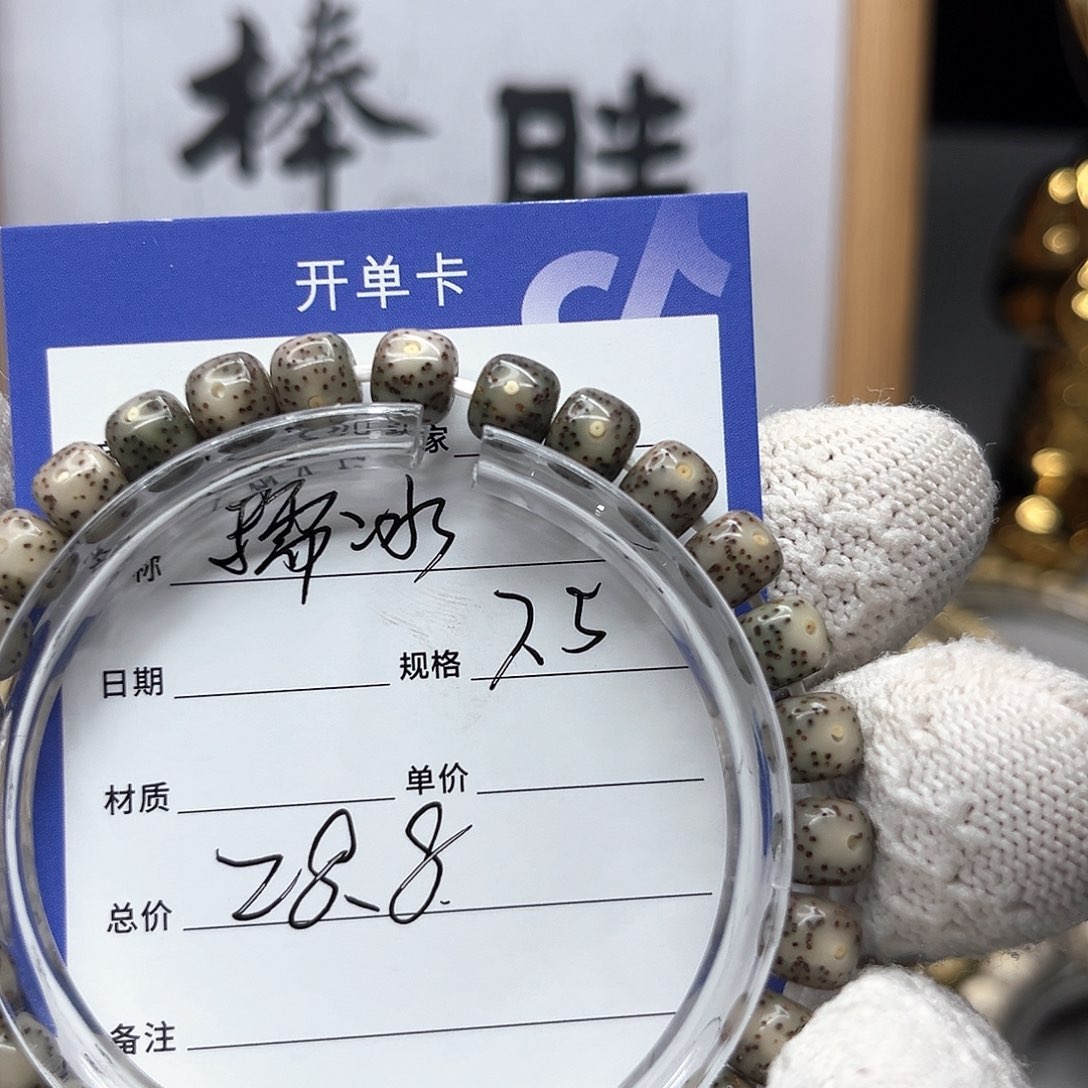 棒 哇
开单卡
家
称
日期 规格 75
材质 单价
总价 28.8
备注